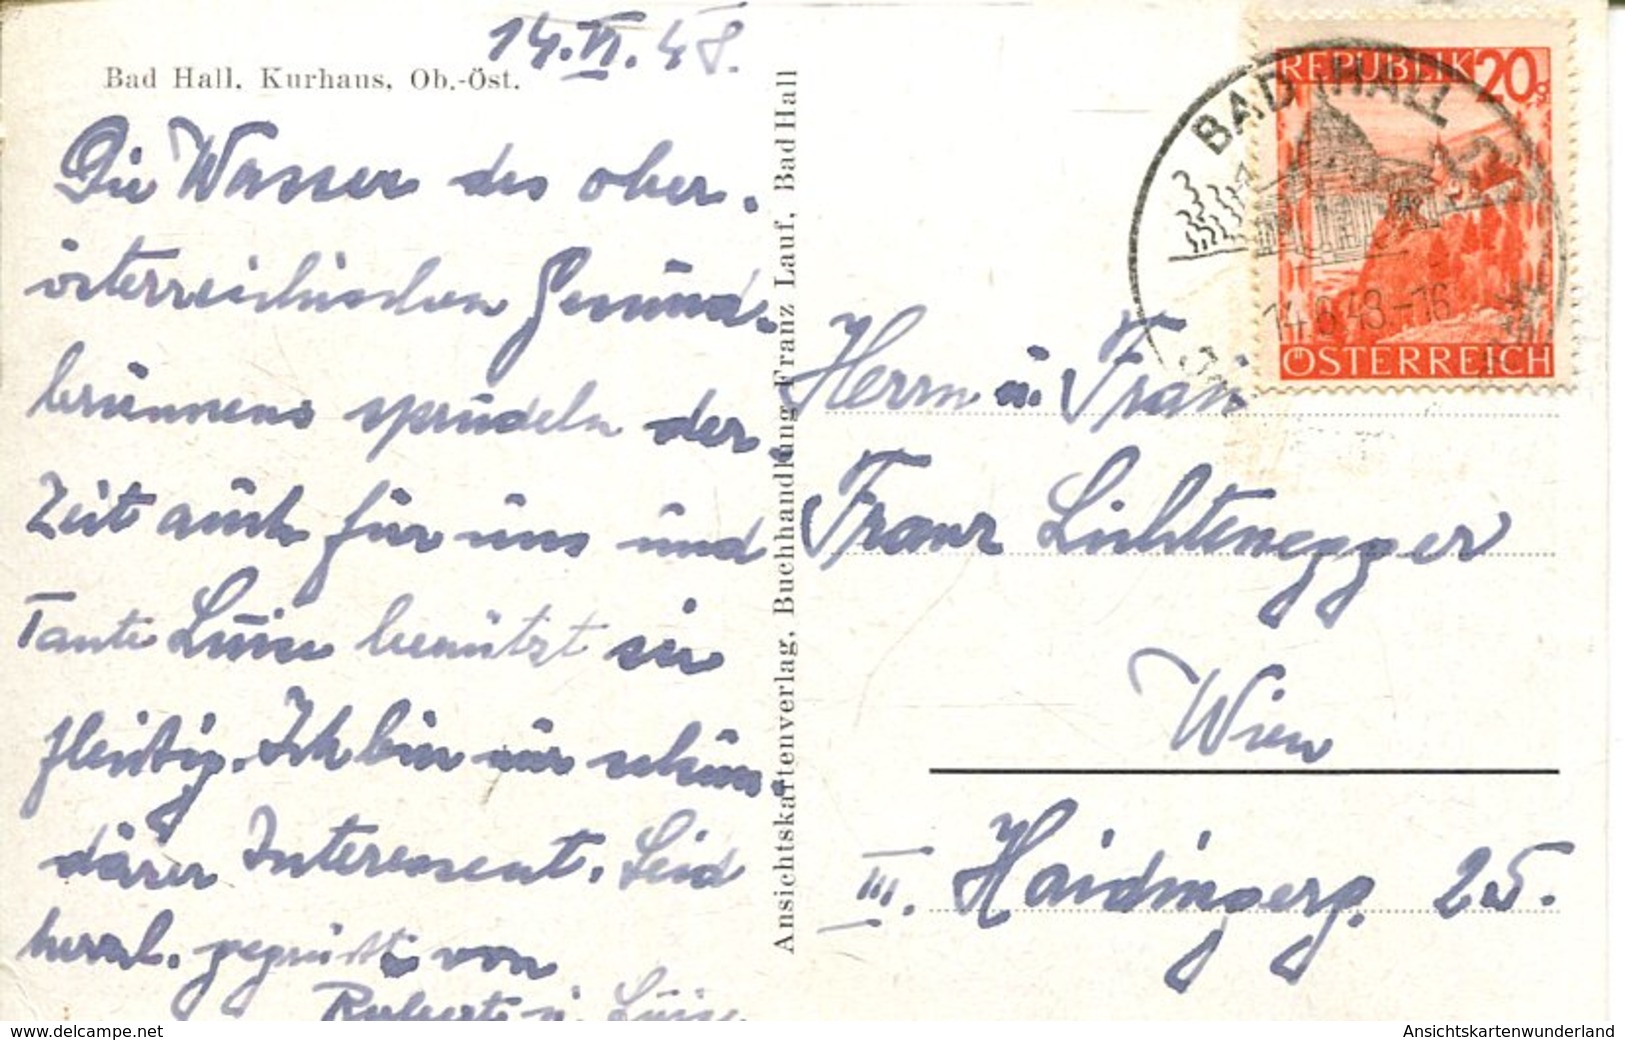 14.VI.48.
Bad Hall. Kurhaus, Ob.-Öst.
Die Wasser des ober-
österreichischen Gesund-
brunnens sprudeln der-
zeit auch für uns und
Tante Luise benützt sie
fleißig. Ich bin nur sekun-
därer Interessent. Seid
herzl. gegrüßt von
u. Luise
Ansichtskartenverlag, Buchhandlung Franz Lauf, Bad Hall
REPUBLIK 20g
ÖSTERREICH
BAD HALL
14.6.48-16
Herrn u. Frau
Franz Lichtenegger
Wien
III. Haidingerg. 25.
www.delcampe.net
Ansichtskartenwunderland